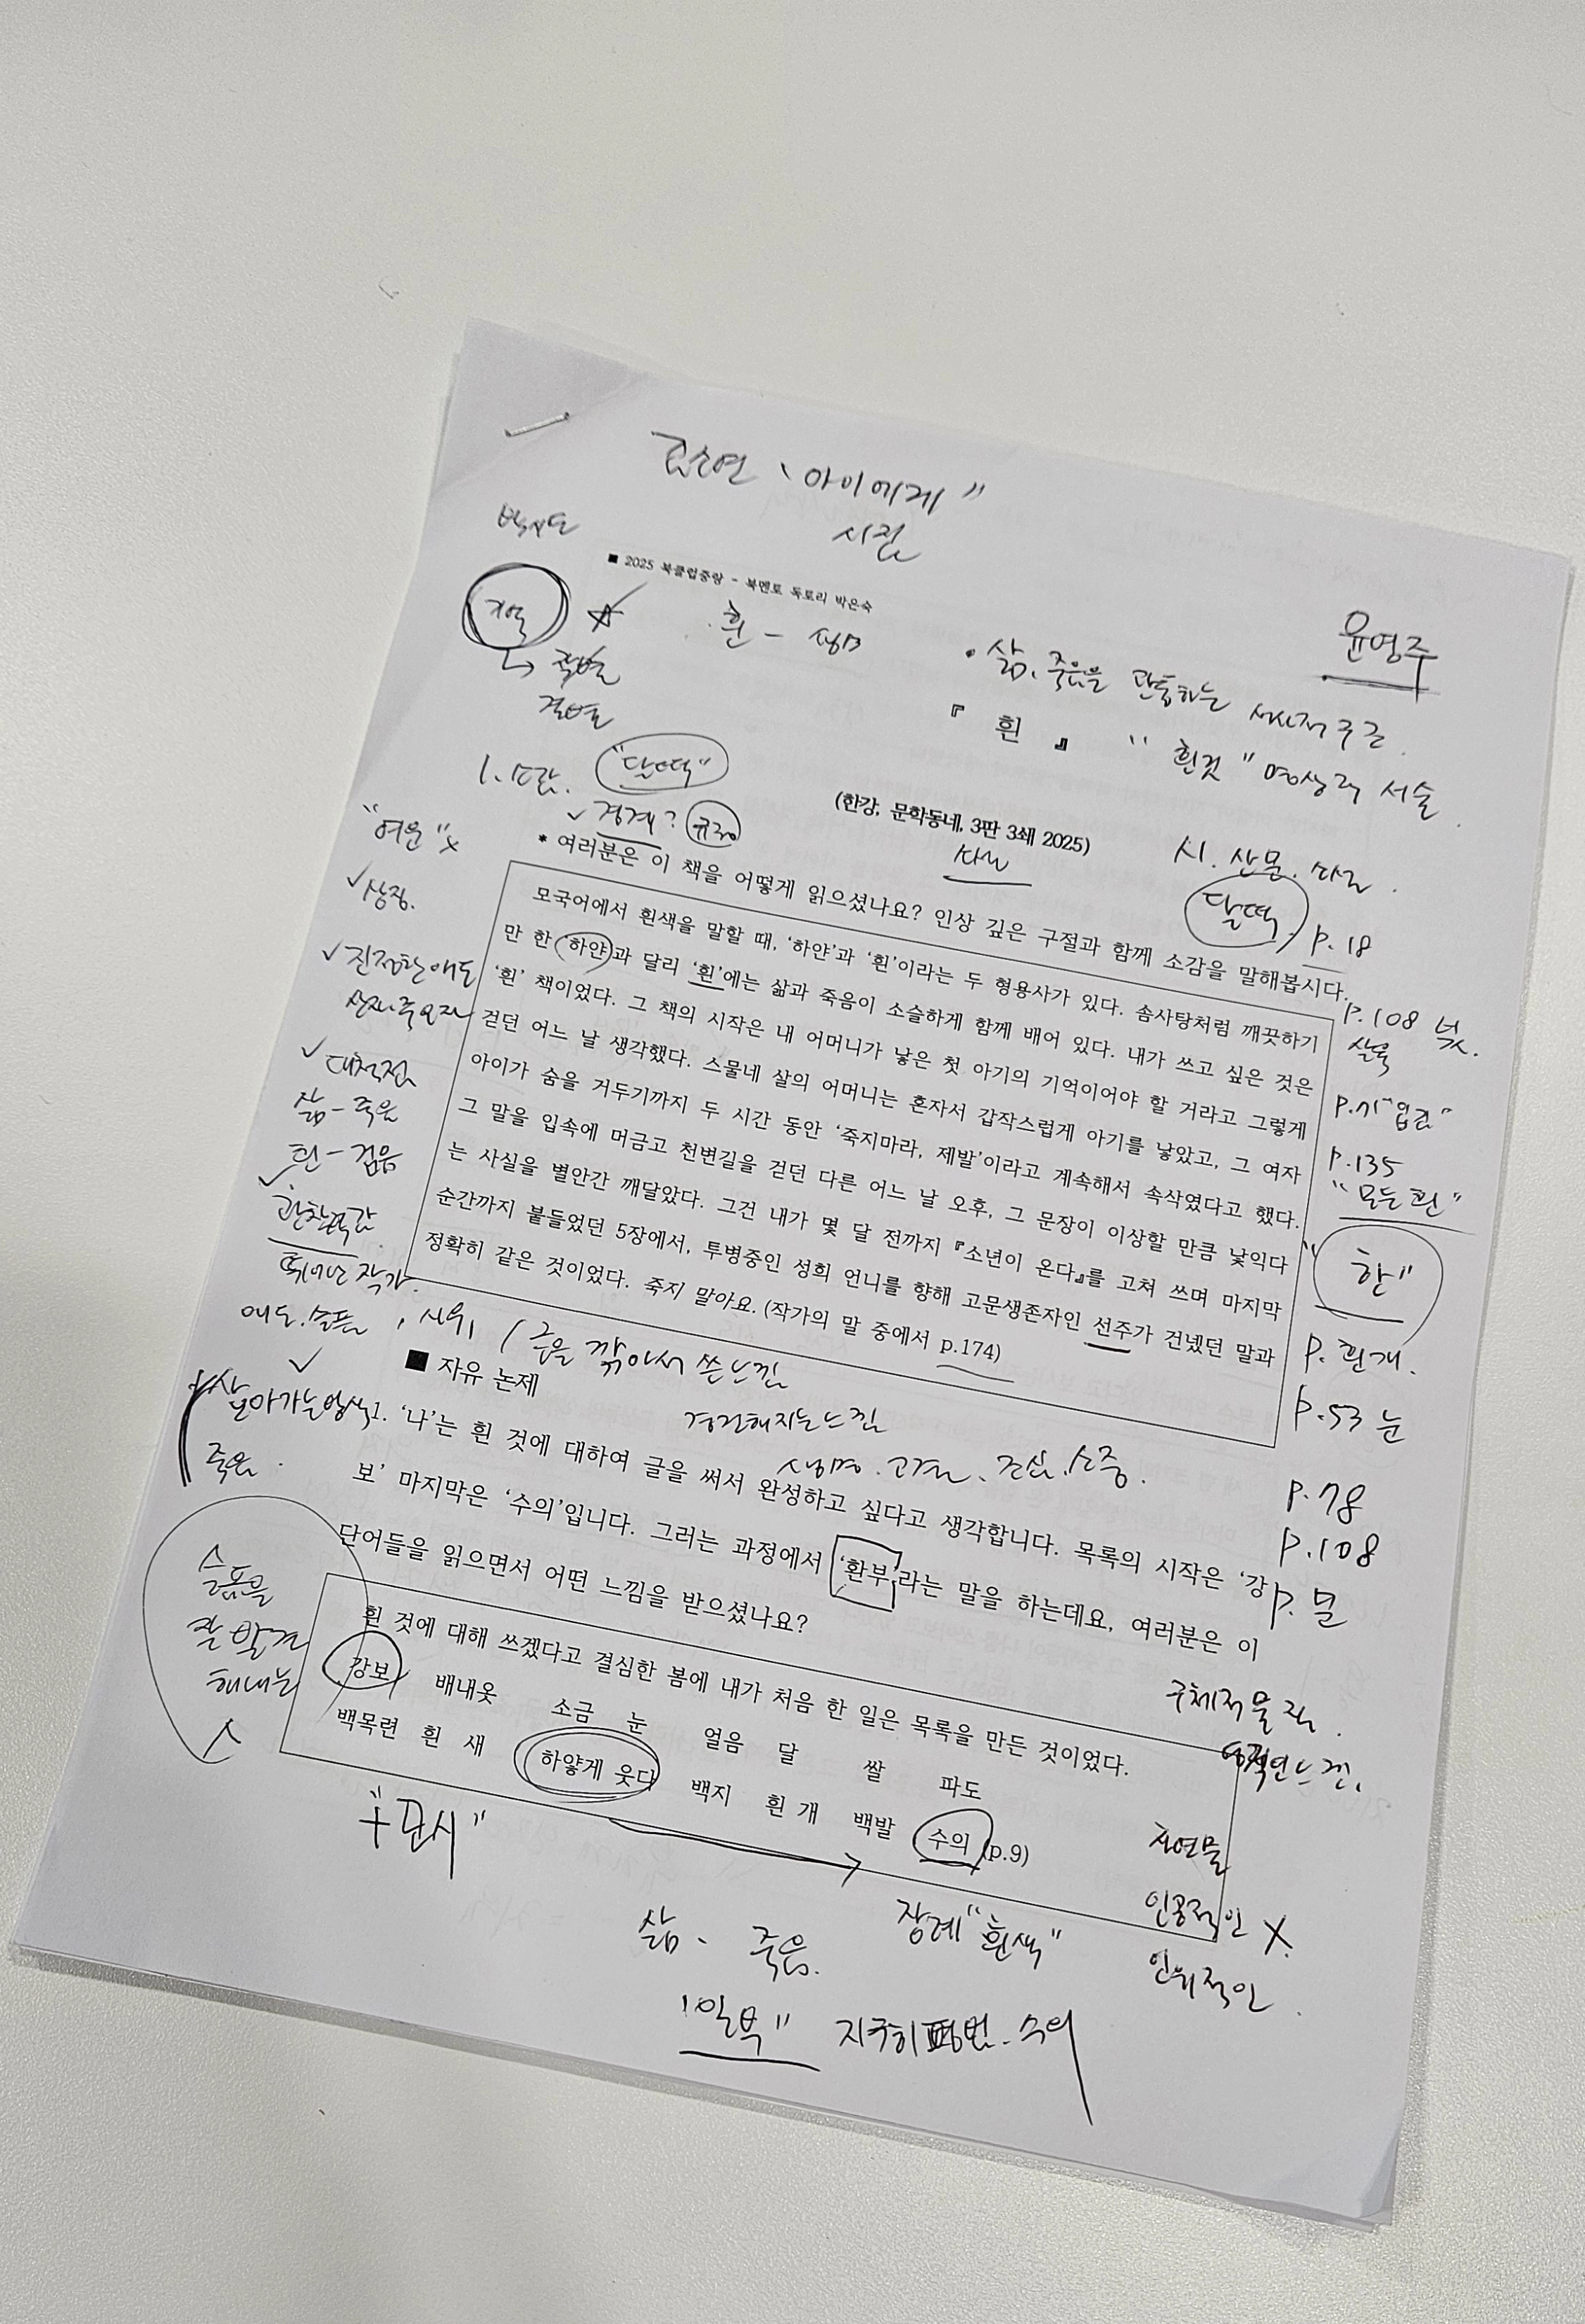 "아이에게"
시집
■ 2025 북클럽중랑 - 북멘토 독토리 박은숙
윤영주
작별
결별
흰 -
• 삶, 죽음을 관통하는 서사적
『 흰 』 "흰것" 명상적 서술
1. 소감. "달떡"
경계? 규정
(한강, 문학동네, 3판 3쇄 2025)
시. 산문. 소설.
달떡. p. 18
* 여러분은 이 책을 어떻게 읽으셨나요? 인상 깊은 구절과 함께 소감을 말해봅시다.
"여운"
✓상징.
✓진정한 애도
✓대척점
삶 - 죽음
흰 - 검음
✓관찰력감
뛰어난 작가.
모국어에서 흰색을 말할 때, '하얀'과 '흰'이라는 두 형용사가 있다. 솜사탕처럼 깨끗하기
만 한 '하얀'과 달리 '흰'에는 삶과 죽음이 소슬하게 함께 배어 있다. 내가 쓰고 싶은 것은
'흰' 책이었다. 그 책의 시작은 내 어머니가 낳은 첫 아기의 기억이어야 할 거라고 그렇게
걷던 어느 날 생각했다. 스물네 살의 어머니는 혼자서 갑작스럽게 아기를 낳았고, 그 여자
아이가 숨을 거두기까지 두 시간 동안 '죽지마라, 제발'이라고 계속해서 속삭였다고 했다.
그 말을 입속에 머금고 천변길을 걷던 다른 어느 날 오후, 그 문장이 이상할 만큼 낯익다
는 사실을 별안간 깨달았다. 그건 내가 몇 달 전까지 『소년이 온다』를 고쳐 쓰며 마지막
순간까지 붙들었던 5장에서, 투병중인 성희 언니를 향해 고문생존자인 선주가 건넸던 말과
정확히 같은 것이었다. 죽지 말아요. (작가의 말 중에서 p.174)
p. 108 넋.
p.71 "입김"
p.135
"모든 흰"
"한"
p. 흰개.
p.53 눈
p.78
p.108
애도. 슬픔, 시위 / 글을 깎아서 쓴 느낌
■ 자유 논제
경건해지는 느낌
생명. 고결. 조심. 소중.
살아가는 방식
죽음.
1. '나'는 흰 것에 대하여 글을 써서 완성하고 싶다고 생각합니다. 목록의 시작은 '강
보' 마지막은 '수의'입니다. 그러는 과정에서 '환부'라는 말을 하는데요, 여러분은 이
단어들을 읽으면서 어떤 느낌을 받으셨나요?
슬픔을
잘 발견
해내는
흰 것에 대해 쓰겠다고 결심한 봄에 내가 처음 한 일은 목록을 만든 것이었다.
강보 배내옷 소금 눈 얼음 달 쌀 파도
백목련 흰 새 하얗게 웃다 백지 흰 개 백발 수의 (p.9)
구체적 물질.
자연물
인공적인 X.
인위적인.
삶 - 죽음. 장례 "흰색"
"일부" 지극히 평범. 수의